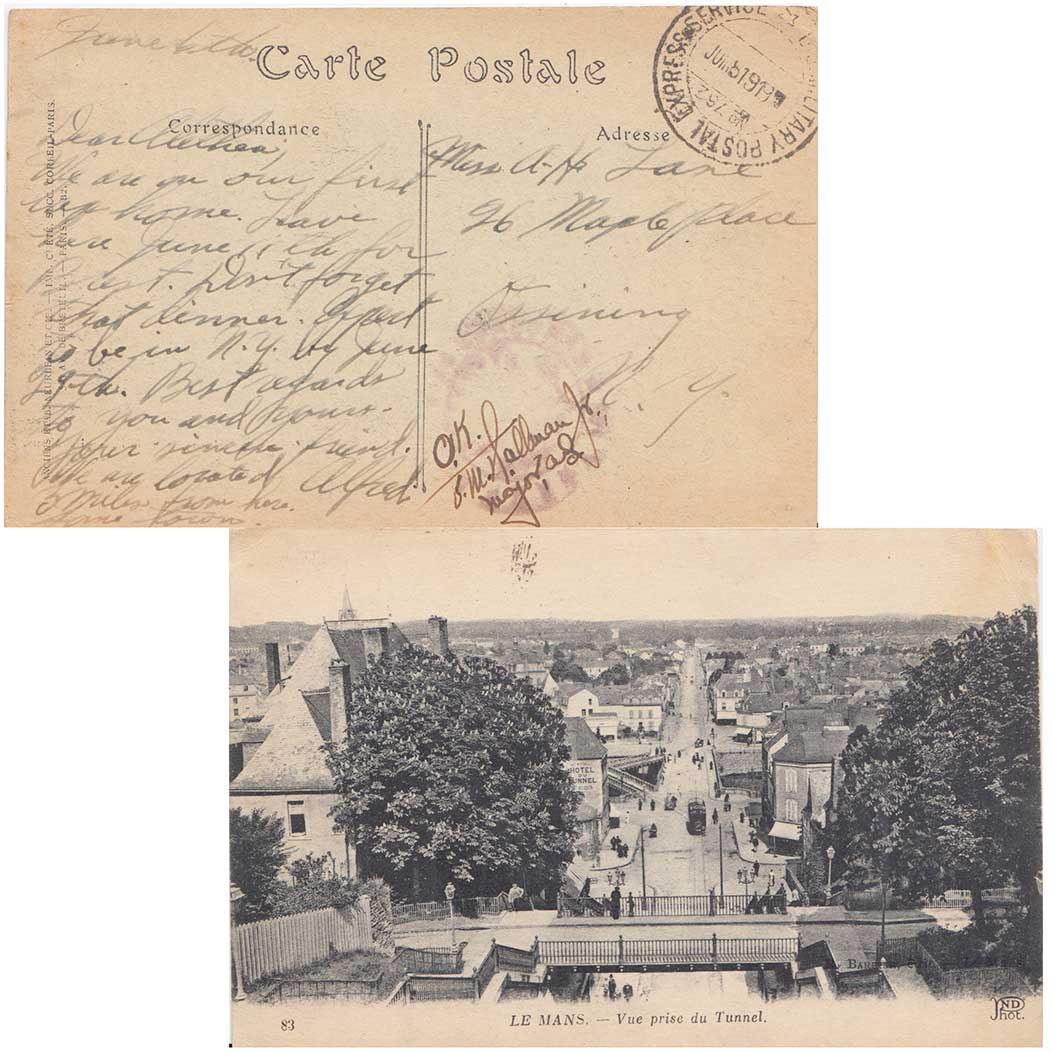 June 6th
Carte Postale
Correspondance
Adresse
MILITARY POSTAL EXPRESS SERVICE
JUN 51919
No 762
Dear
We are on our first
lap home. Leave
here June 11th for
Brest. Don't forget
that dinner. Expect
to be in N.Y. by June
29th. Best regards
to you and yours.
Your sincere friend.
Alfred
We are located
5 miles from here.
town.
Miss A. H. Lane
26 Maple place
Ossining
N. Y.
O.K.
Hallman Jr.,
Major,
HOTEL
TUNNEL
83
LE MANS. — Vue prise du Tunnel.
ND
Phot.